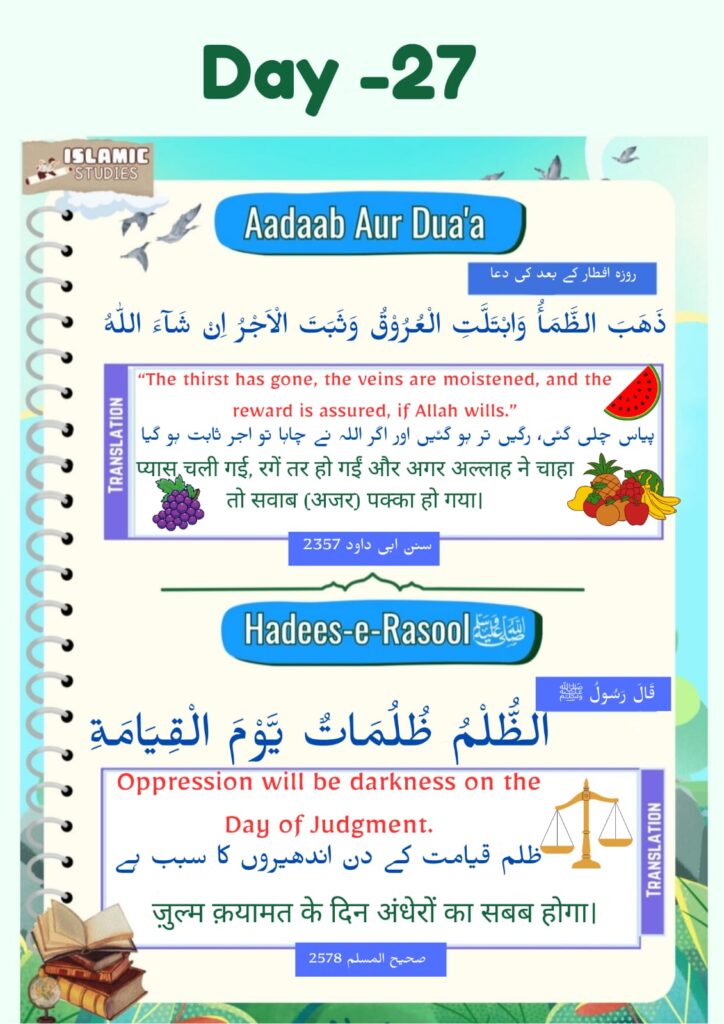 Day -27
ISLAMIC
STUDIES
Aadaab Aur Dua'a
روزہ افطار کے بعد کی دعا
ذَهَبَ الظَّمَأُ وَابْتَلَّتِ الْعُرُوْقُ وَثَبَتَ الْاَجْرُ اِنْ شَآءَ اللهُ
TRANSLATION
“The thirst has gone, the veins are moistened, and the
reward is assured, if Allah wills.”
پیاس چلی گئی، رگیں تر ہو گئیں اور اگر اللہ نے چاہا تو اجر ثابت ہو گیا
प्यास चली गई, रगें तर हो गईं और अगर अल्लाह ने चाहा
तो सवाब (अजर) पक्का हो गया।
سنن ابی داود 2357
Hadees-e-Rasool ﷺ
قَالَ رَسُولُ ﷺ
الظُّلْمُ ظُلُمَاتٌ يَّوْمَ الْقِيَامَةِ
Oppression will be darkness on the
Day of Judgment.
ظلم قیامت کے دن اندھیروں کا سبب ہے
ज़ुल्म क़यामत के दिन अंधेरों का सबब होगा।
TRANSLATION
صحیح المسلم 2578